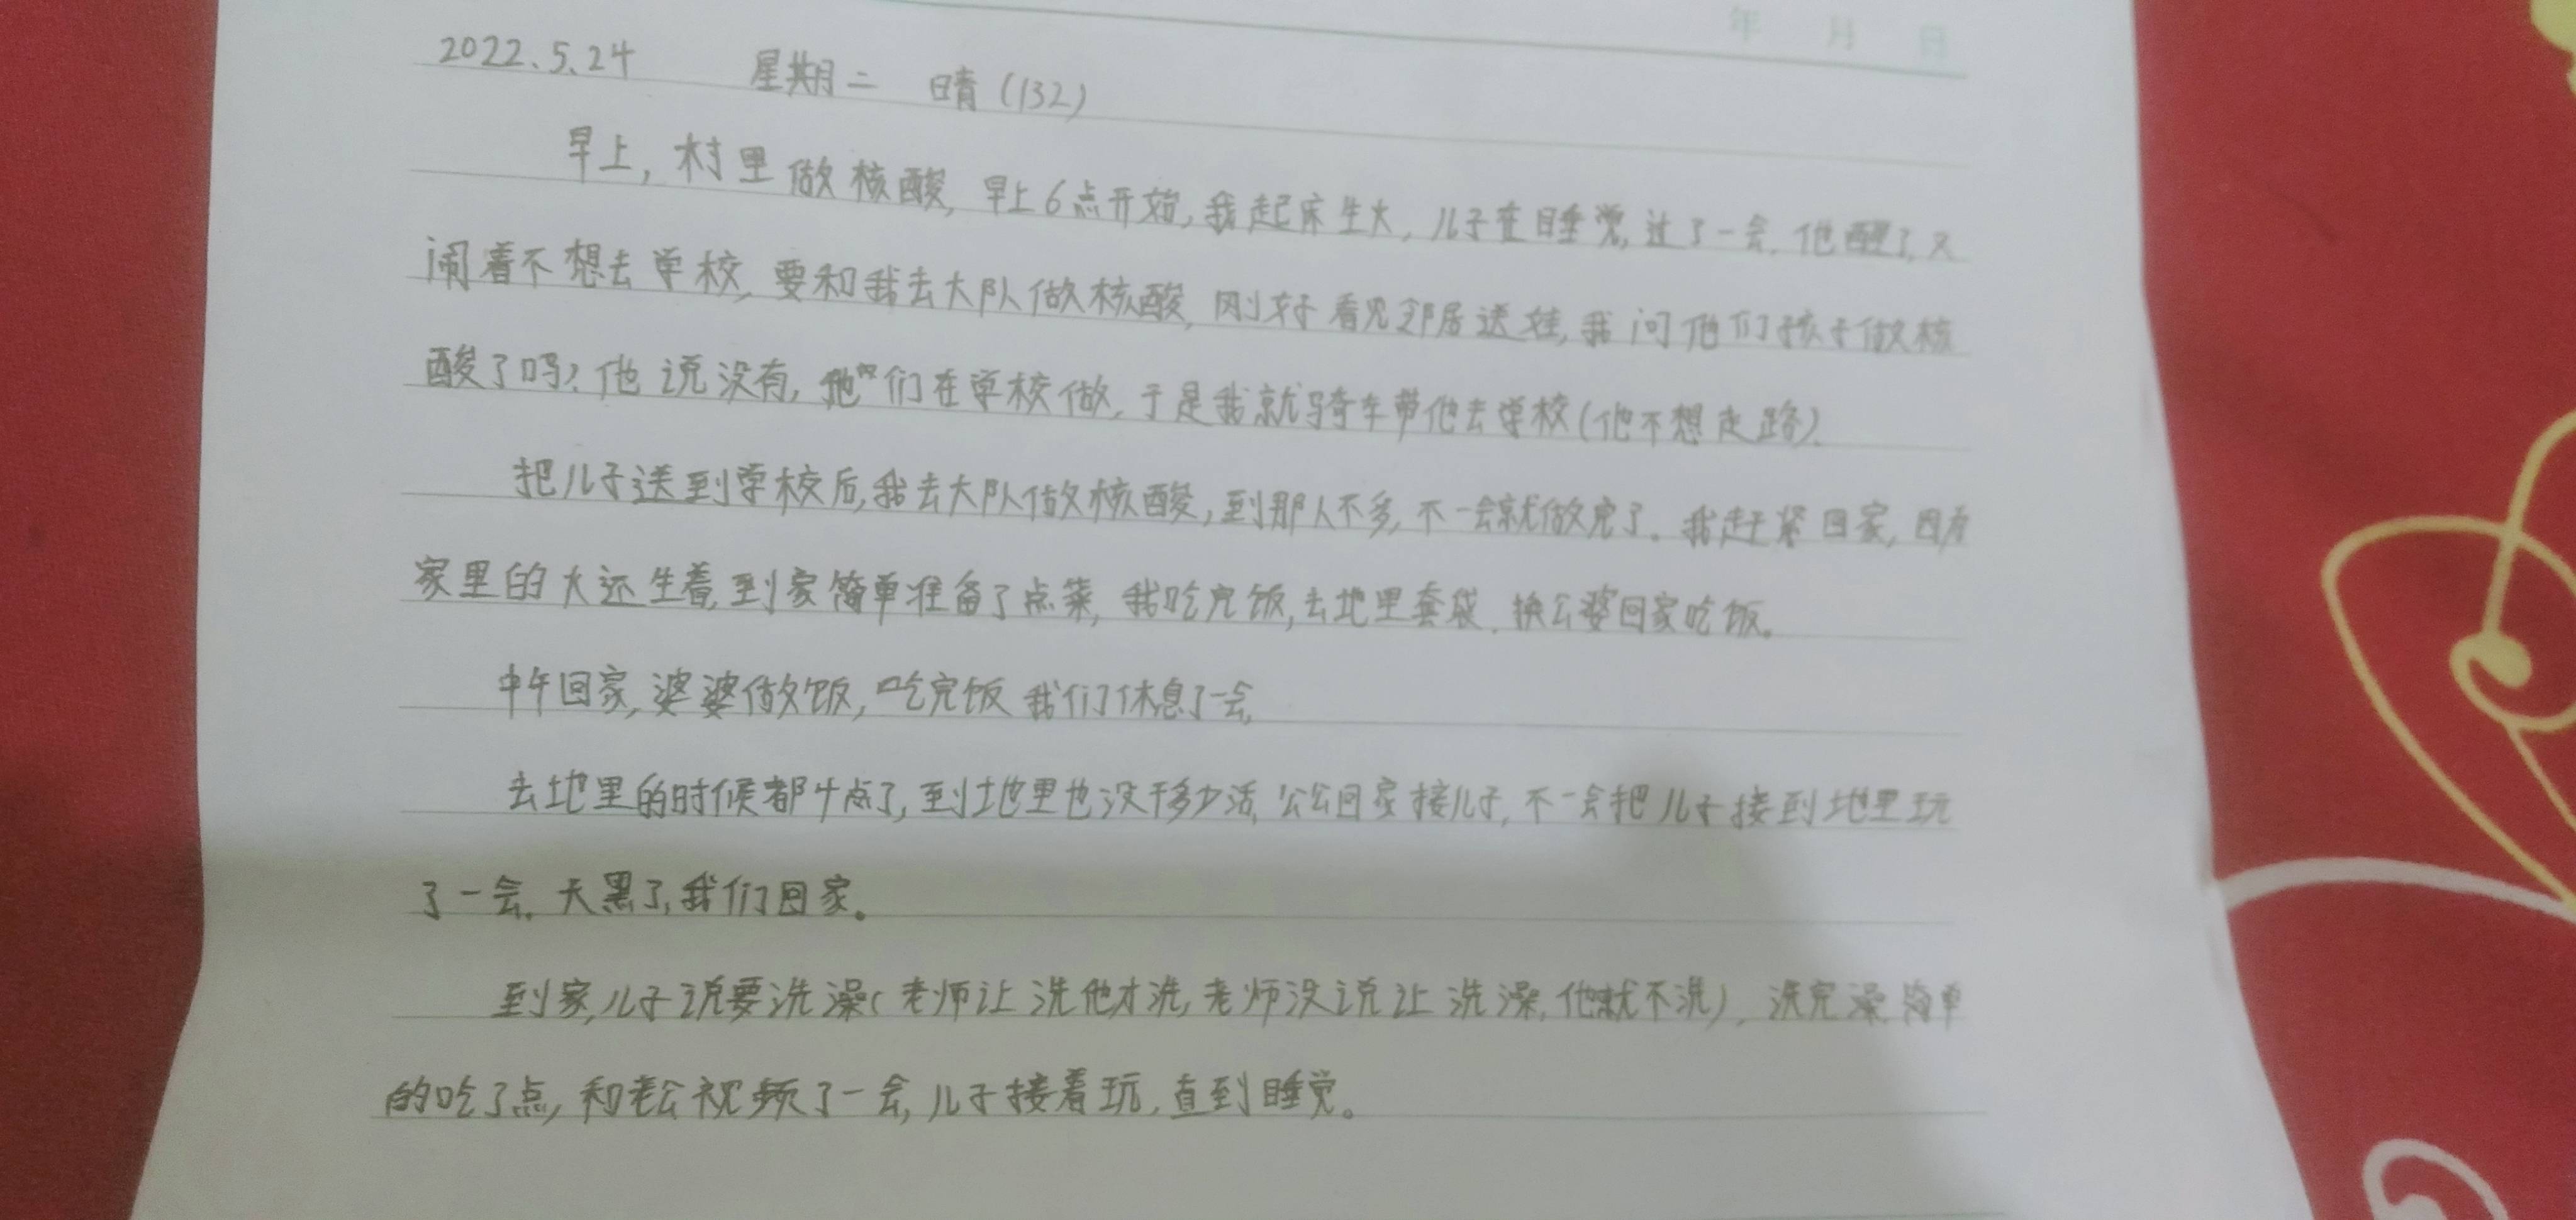 年 月 日
2022.5.24 星期二 晴(132)
早上,村里做核酸,早上6点开始,我起床生火,儿子在睡觉,过了一会,他醒了,又
闹着不想去学校,要和我去大队做核酸,刚好看见邻居送娃,我问他们孩子做核
酸了吗?他说没有,他们在学校做,于是我就骑车带他去学校(他不想走路).
把儿子送到学校后,我去大队做核酸,到那人不多,不一会就做完了。我赶紧回家,因为
家里的火还生着,到家简单准备了点菜,我吃完饭,去地里套袋.换公婆回家吃饭。
中午回家,婆婆做饭,吃完饭我们休息了一会,
去地里的时候都4点了,到地里也没干多少活,公公回家接儿子,不一会把儿子接到地里玩
了一会,天黑了,我们回家。
到家,儿子说要洗澡(老师让洗他才洗,老师没说让洗澡,他就不洗),洗完澡,简单
的吃了点,和老公视频了一会,儿子接着玩,直到睡觉。